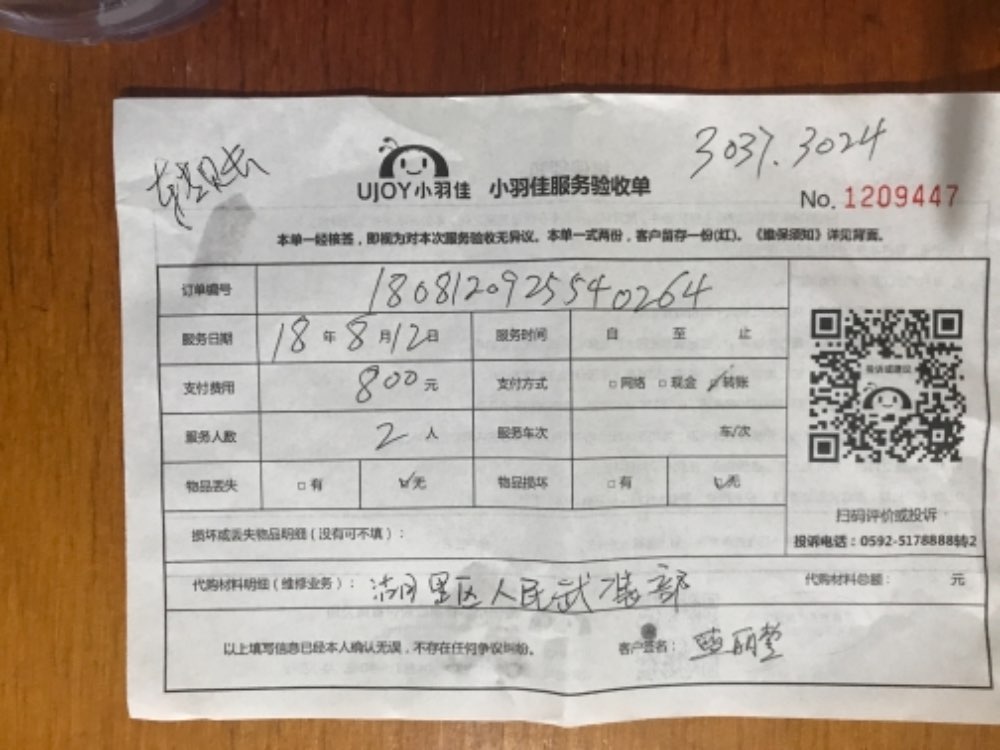 3037.3024
UJOY小羽佳 小羽佳服务验收单
No. 1209447
本单一经核签，即视为对本次服务验收无异议。本单一式两份，客户留存一份(红)。《维保须知》详见背面。
订单编号 180812092554 0264
服务日期 18年8月12日 服务时间 自 至 止
支付费用 800元 支付方式 □网络 □现金 ☑转账
服务人数 2人 服务车次 车/次
物品丢失 □有 ☑无 物品损坏 □有 ☑无
投诉或建议
扫码评价或投诉
投诉电话：0592-5178888转2
损坏或丢失物品明细（没有可不填）：
代购材料明细（维修业务）：湖里区人民武装部 代购材料总额： 元
以上填写信息已经本人确认无误，不存在任何争议纠纷。 客户签名：